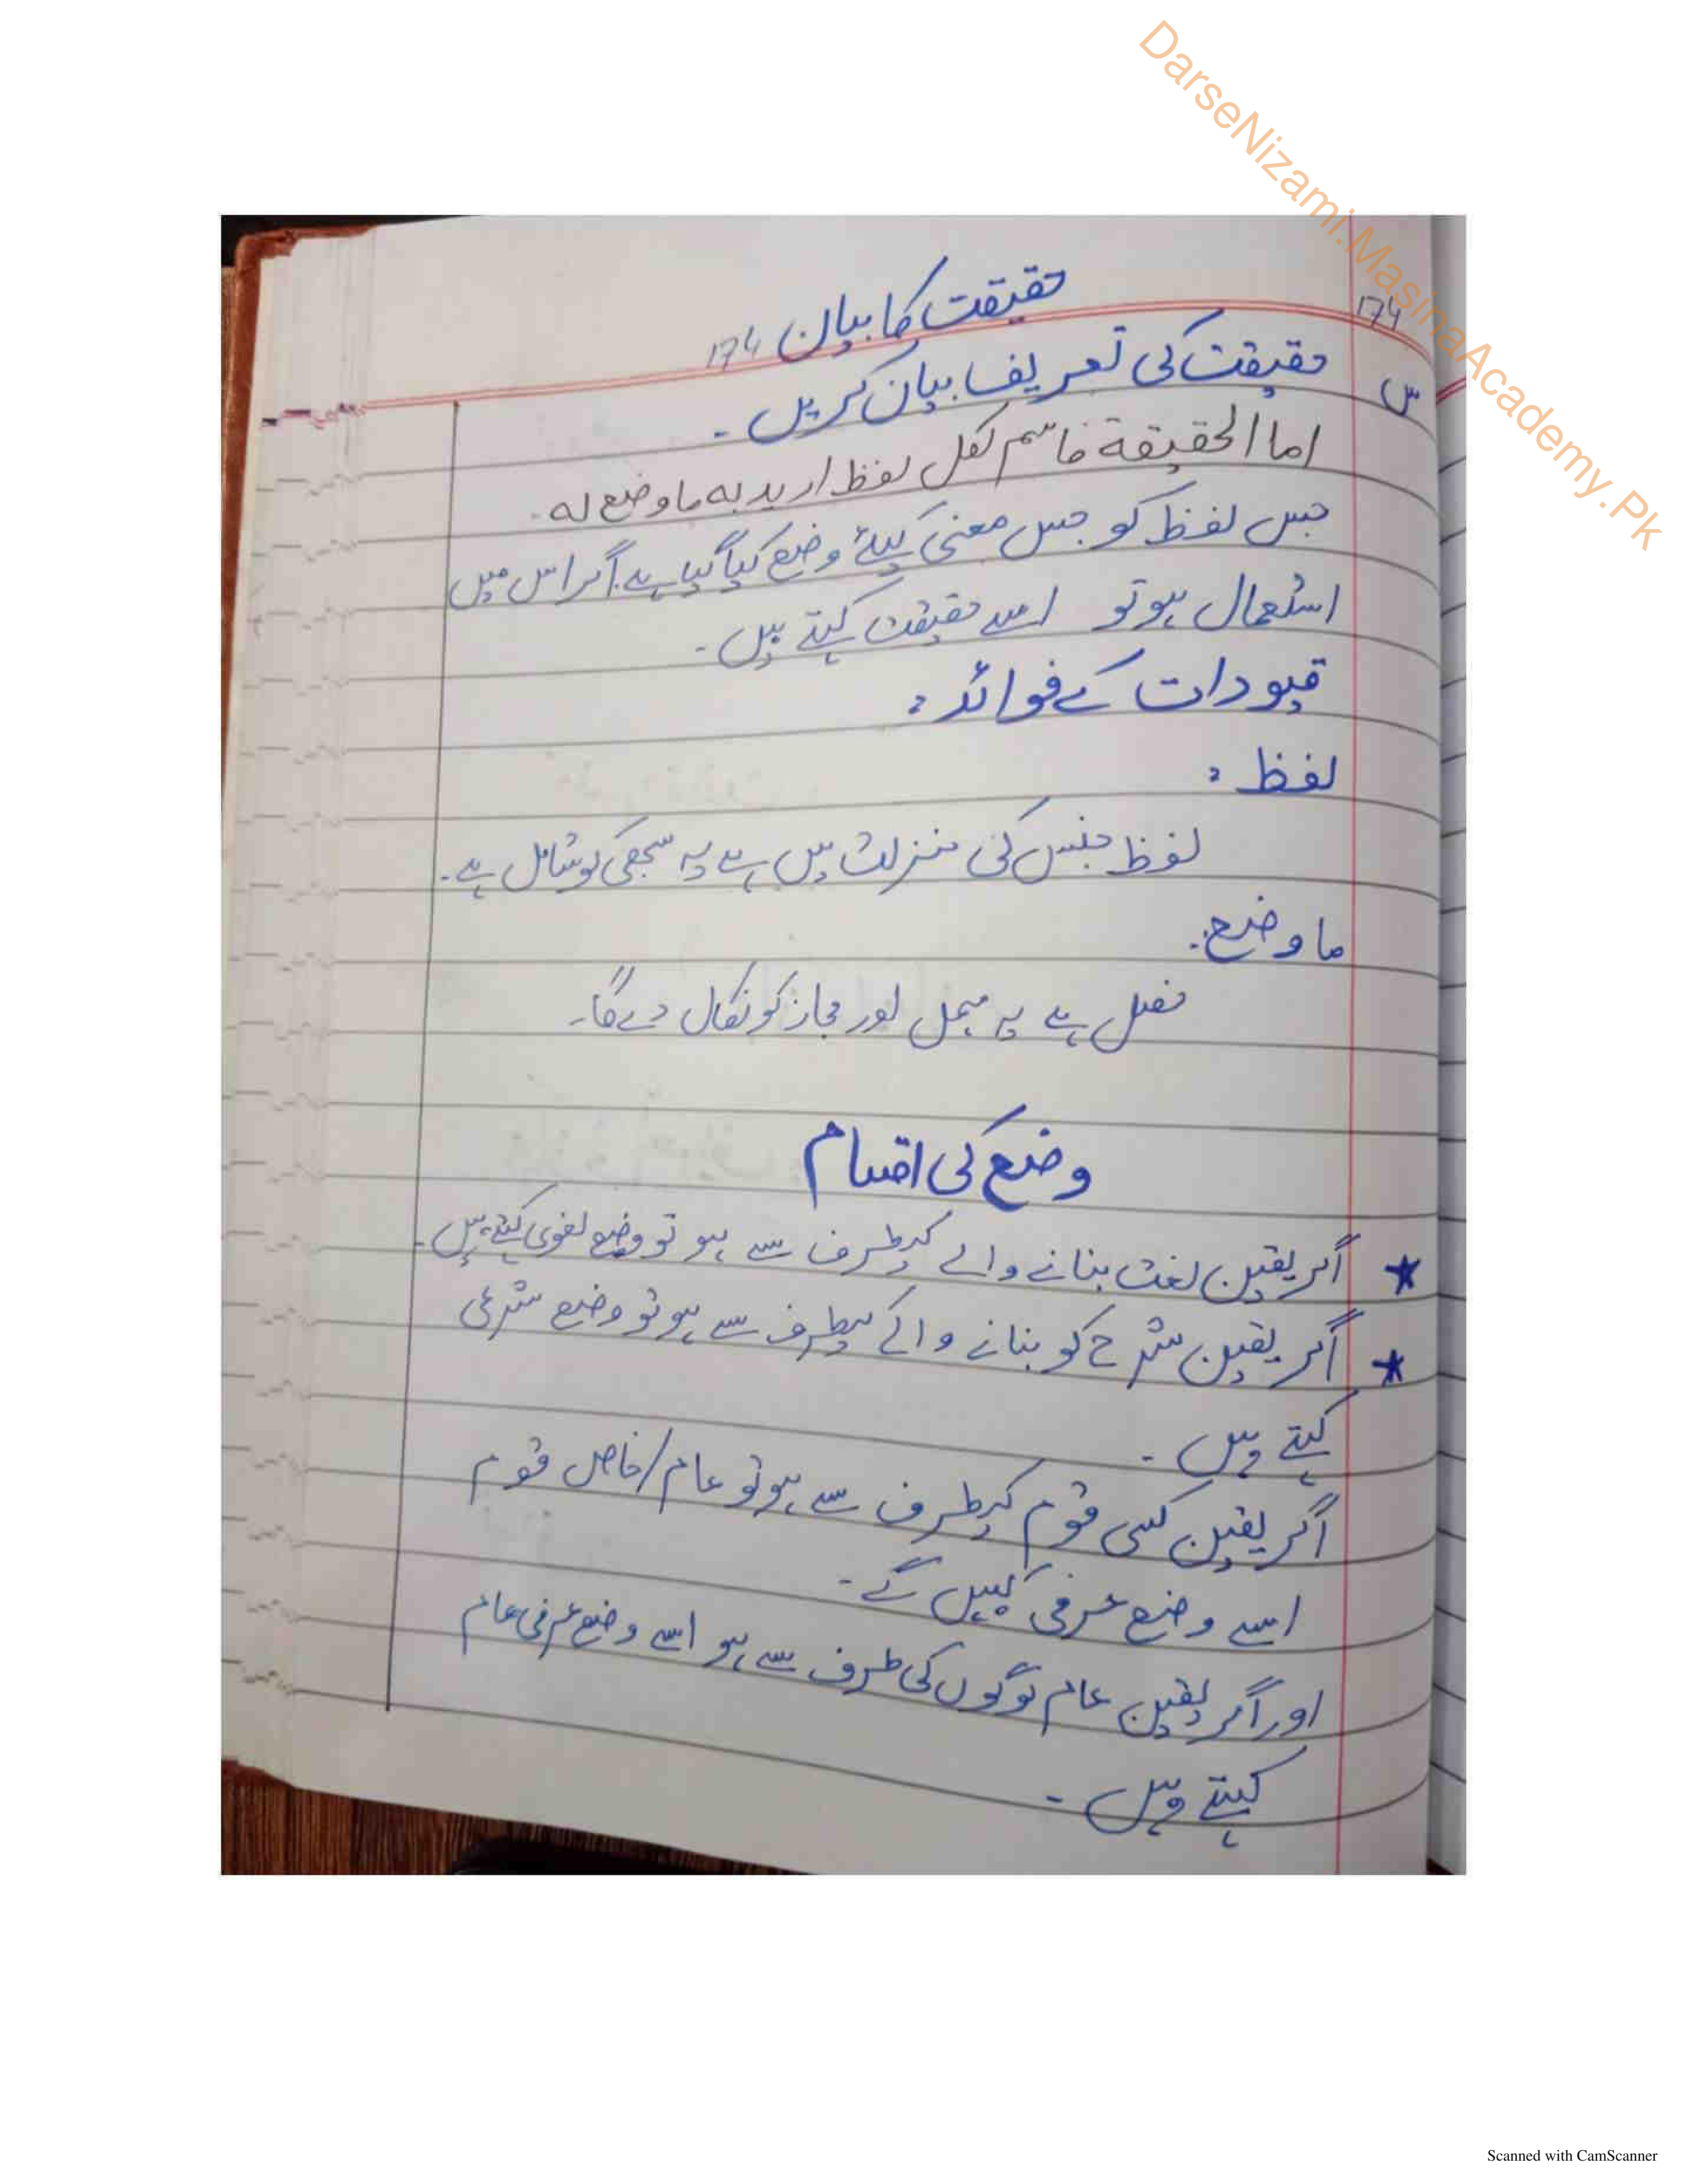 DarseNizami.MasinaAcademy.Pk
حقیقت کا بیان 174
174
س حقیقت کی تعریف بیان کریں ۔
اما الحقیقة فاسم لکل لفظ ارید به ما وضع له ۔
جس لفظ کو جس معنی کیلئے وضع کیا گیا ہے اگر اس میں
استعمال ہو تو اسے حقیقت کہتے ہیں ۔
قیودات کے فوائد :
لفظ :
لفظ جنس کی منزلت میں ہے یہ سبھی کو شامل ہے ۔
ما وضع :
فصل ہے یہ مہمل اور مجاز کو نکال دے گا ۔
وضع کی اقسام
★ اگر یقین لغت بنانے والے کیطرف سے ہو تو وضع لغوی کہتے ہیں ۔
★ اگر یقین شرع کو بنانے والے کیطرف سے ہو تو وضع شرعی
کہتے ہیں ۔
اگر یقین کسی قوم کیطرف سے ہو تو عام/خاص قوم
اسے وضع عرفی کہیں گے ۔
اور اگر یقین عام لوگوں کی طرف سے ہو اسے وضع عرفی عام
کہتے ہیں ۔
Scanned with CamScanner